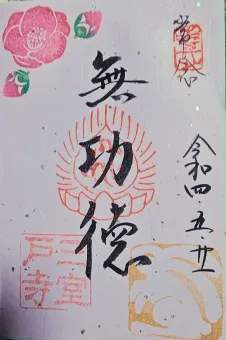 令和四・五・廿
無功徳
三室
戸寺